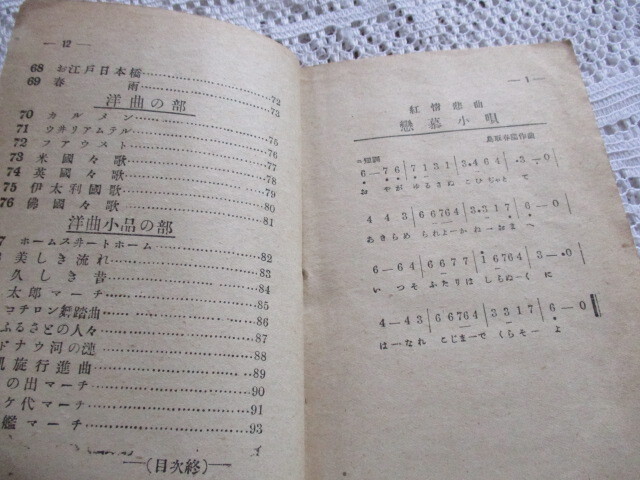 — 12 —
68 お江戸日本橋 72
69 春雨 73
洋曲の部
70 カルメン 75
71 ウヰリアムテル 76
72 フアウスト 76
73 米國々歌 77
74 英國々歌 78
75 伊太利國歌 79
76 佛國々歌 80
81
洋曲小品の部
7 ホームスヰートホーム 82
美しき流れ 83
久しき昔 84
太郎マーチ 85
コチロン舞踏曲 86
ふるさとの人々 87
ドナウ河の漣 88
凱旋行進曲 89
の出マーチ 90
ケ代マーチ 91
艦マーチ 93
—(目次終)—
— 1 —
紅情悲曲
戀慕小唄
鳥取春陽作曲
短調
6—76|7131|3・464|3—0
おやがゆるさぬこひぢやとて
4 4 3|66764|3・317|6—0
あきらめられよーかねーおまへ
6—64|6677|i6764|3—・0
いつそふたりはしらぬくに
4—43|66764|3 3 1 7|6—0
はーなれこじまーでくらそーよ